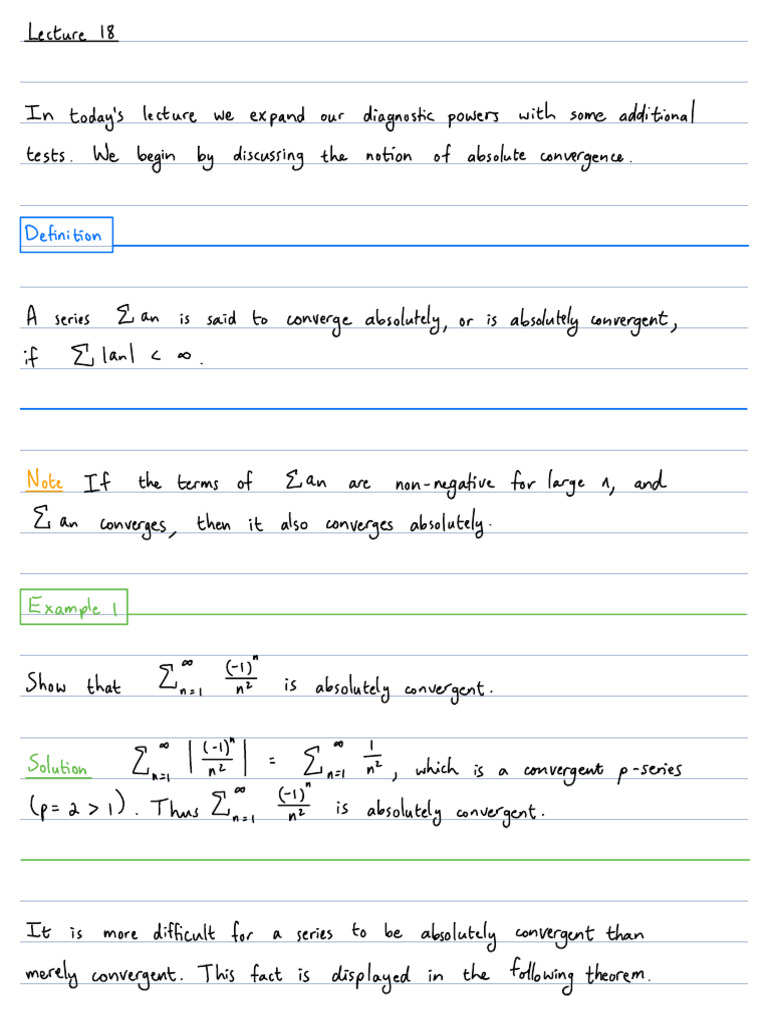 Lecture 18
In today's lecture we expand our diagnostic powers with some additional
tests. We begin by discussing the notion of absolute convergence.
Definition
A series ∑ an is said to converge absolutely, or is absolutely convergent,
if ∑ |an| < ∞.
Note If the terms of ∑ an are non-negative for large n, and
∑ an converges, then it also converges absolutely.
Example 1
Show that ∑_{n=1}^∞ (-1)^n / n² is absolutely convergent.
Solution ∑_{n=1}^∞ |(-1)^n / n²| = ∑_{n=1}^∞ 1 / n², which is a convergent p-series
(p = 2 > 1). Thus ∑_{n=1}^∞ (-1)^n / n² is absolutely convergent.
It is more difficult for a series to be absolutely convergent than
merely convergent. This fact is displayed in the following theorem.